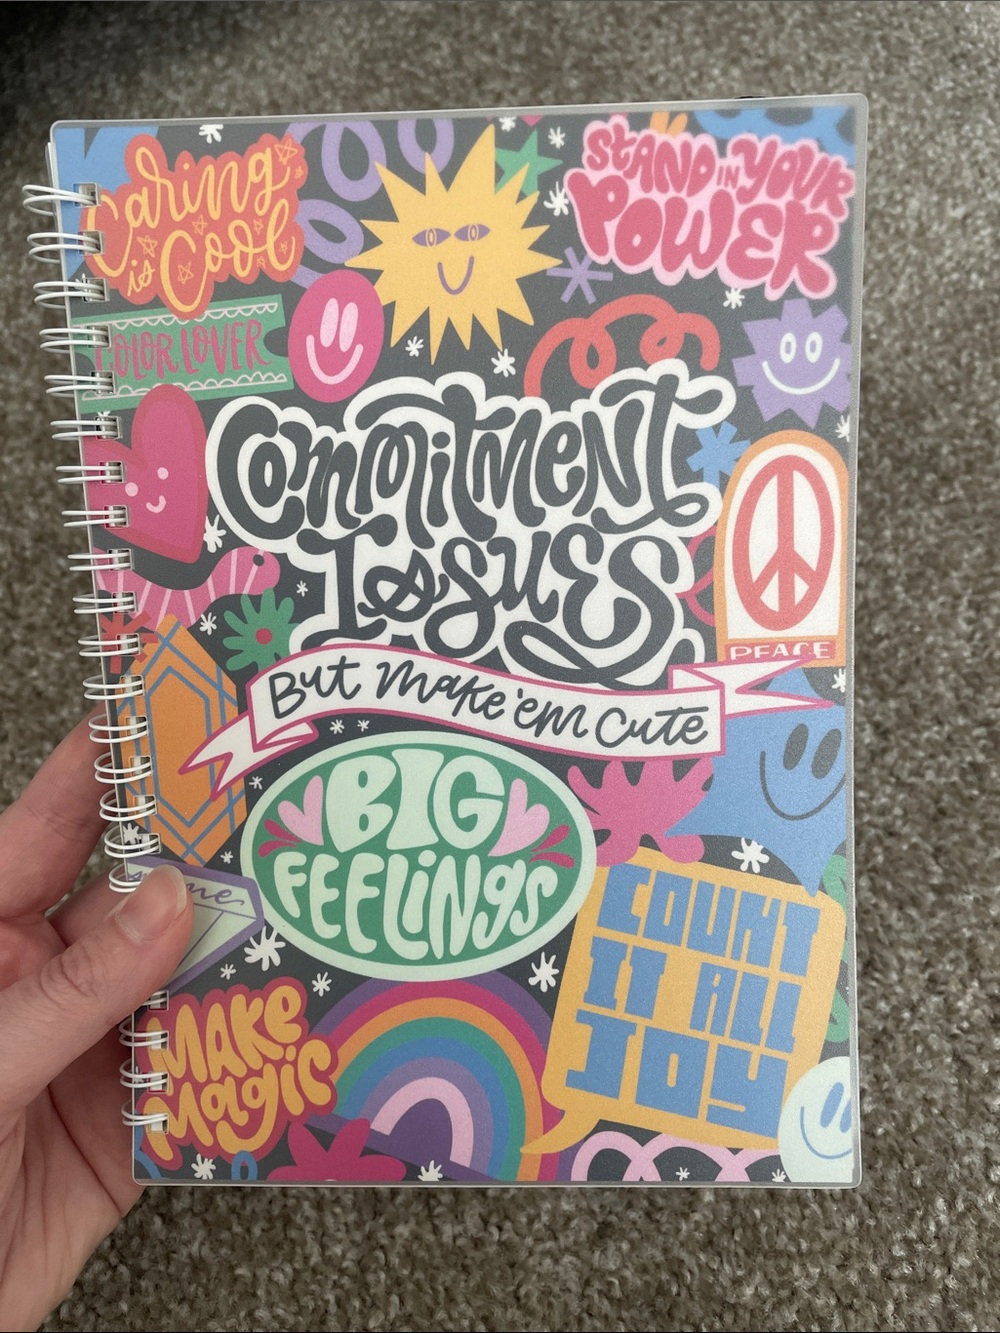 Caring
is Cool
STAND IN YOUR
POWER
COLOR LOVER
Commitment
Issues
PEACE
But make 'em cute
BIG
FEELiNgS
COUNT
IT ALL
JOY
MAKE
Magic